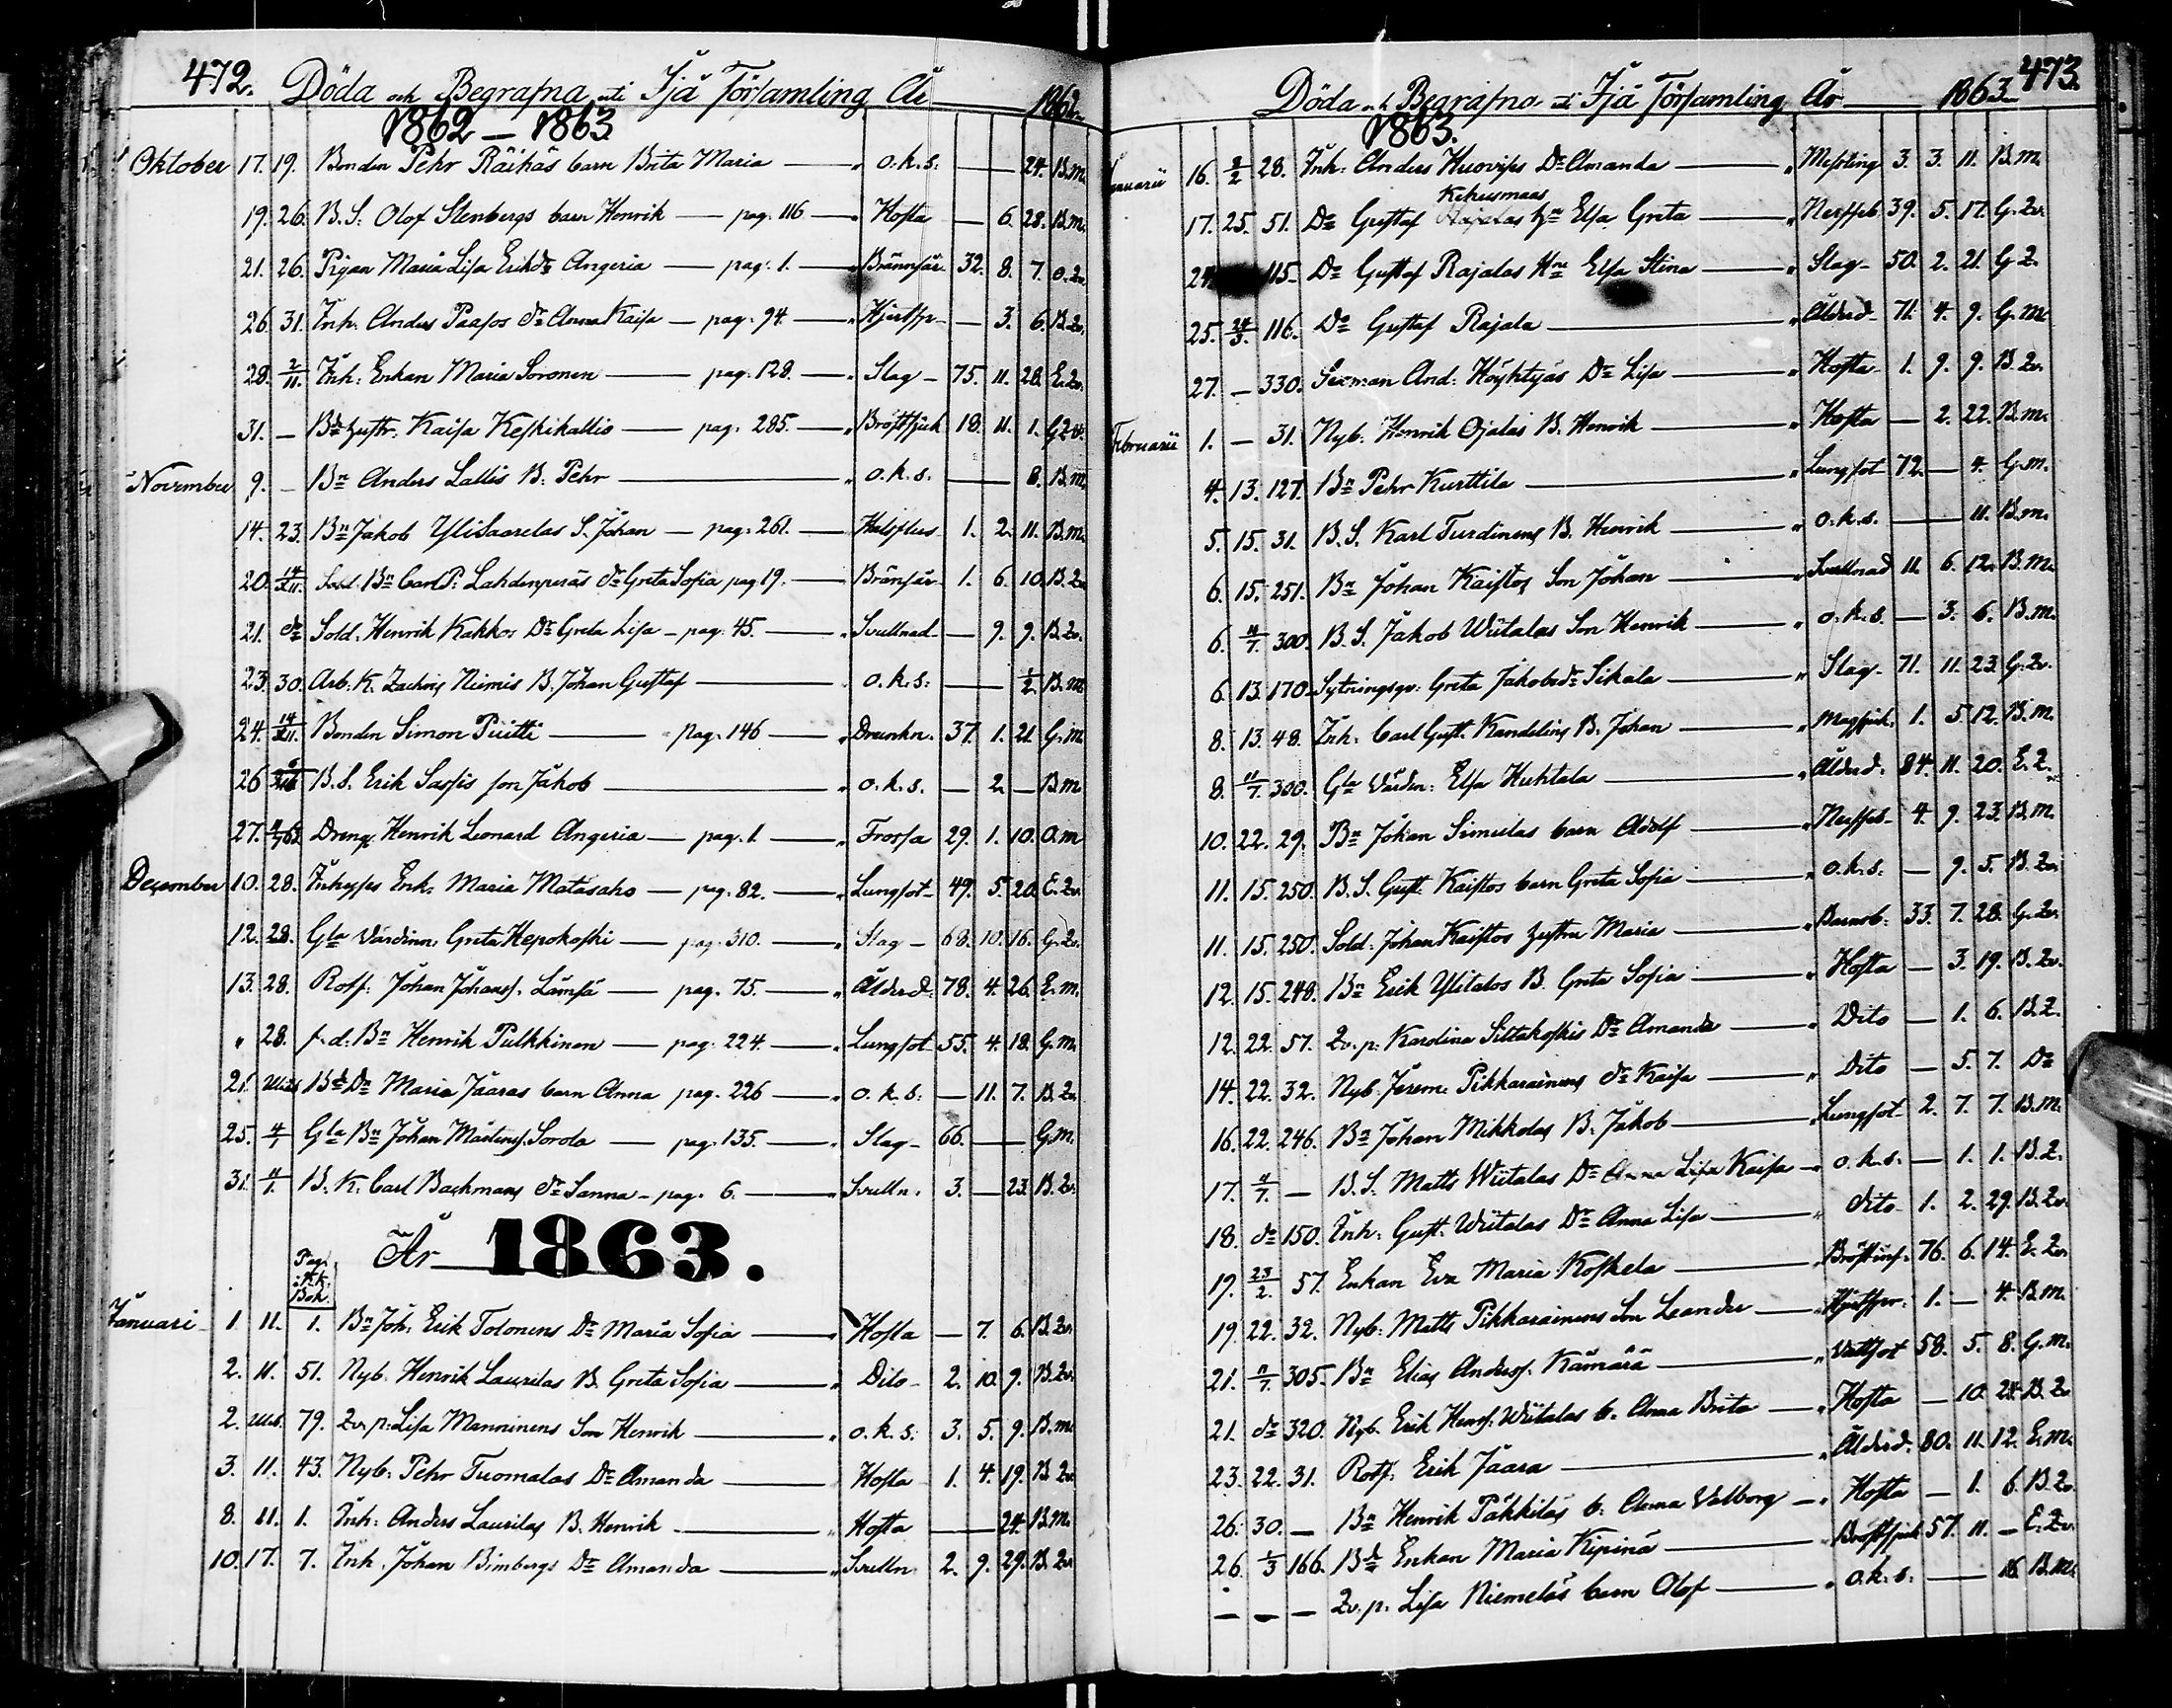 472. Döda och Begrafna uti Ijå Församling År 1862.
1862 – 1863
Oktober 17. 19. Bonden Pehr Räihäs barn Brita Maria — " o.k.s. — 24. B.m.
19. 26. B.S. Olof Stenbergs barn Henrik — pag. 116 — " Hosta — 6. 28. B.m.
21. 26. Pigan Maria Lisa Eriksdr Angeria — pag. 1. — " Brännsår. 32. 8. 7. O.Qv.
26. 31. Inh. Anders Paasos dr Anna Kaisa — pag. 94. — " Hjertspr — 3. 6. B.Qv.
28. 2/11. Inh. Enkan Maria Soronen — pag. 128. — " Slag – 75. 11. 28. E.Qv.
31. – Bds hustr. Kaisa Keskikallio — pag. 285. — " Bröstsjuk 18. 11. 1. G.Qv.
November 9. – Bn Anders Lallis B. Pehr — " o.k.s. — 8. B.m.
14. 23. Bn Jakob Ylisaarelas S. Johan — pag. 261. — Halsflus 1. 2. 11. B.m.
20. 14/XII. Bn Carl P. Lahdenperäs dr Greta Sofia pag 19. — Brännsår. 1. 6. 10. B.Qv.
21. do Sold. Henrik Kakkos Dr Greta Lisa – pag. 45. — " Svullnad – 9. 9. B.Qv.
23. 30. Arb. K. Zachris Niemis B. Johan Gustaf — " o.k.s. — 1/2. B.m.
24. 14/XII. Bonden Simon Piitti — pag. 146 — " Drunkn. 37. 1. 21. G.m.
26 B.S. Erik Sassis son Jakob — " o.k.s. — 2. — B.m.
27. Dreng. Henrik Leonard Angeria — pag. 1. — " Frossa 29. 1. 10. O.m.
December 10. 28. Inhyses Enk. Maria Matasaho — pag. 82. — " Lungsot – 49. 5. 20. E.Qv.
12. 28. Gla Värdinn. Greta Hepokoski — pag. 310. — " Slag – 68. 10. 16. G.Qv.
13. 28. Rotf. Johan Johanss. Lämsä — pag. 75. — " Ålderd. 78. 4. 26. E.m.
" 28. f.d. Bn Henrik Pulkkinen — pag. 224. — " Lungsot 55. 4. 18. G.m.
21. Bds Dr Maria Jaaras barn Anna pag. 226 — " o.k.s. — 11. 7. B.Qv.
25. 4/1 Gla Bn Johan Mårtenss. Sorola — pag. 135. — " Slag – 66. — G.m.
31. 11/1. B.K. Carl Backmans dr Sanna – pag. 6. — " Svulln. 3. — 23. B.Qv.
År 1863.
Pag. i K.k. Bok.
Januari 1. 11. 1. Bn Joh. Erik Tolonens Dr Maria Sofia — " Hosta — 7. 6. B.Qv.
2. 11. 51. Nyb. Henrik Laurilas B. Greta Sofia — " Dito – 2. 10. 9. B.Qv.
2. 79. Qv.p. Lisa Manninens Son Henrik — " o.k.s. 3. 5. 9. B.m.
3. 11. 43. Nyb. Pehr Tuomalas Dr Amanda — " Hosta – 1. 4. 19. B.Qv.
8. 11. 1. Inh. Anders Laurilas B. Henrik — " Hosta — 24. B.m.
10. 17. 7. Inh. Johan Bimbergs Dr Amanda — " Svulln. 2. 9. 29. B.Qv.
473.
Döda och Begrafna uti Ijå Församling År 1863.
1863.
Januarii 16. 2/2 28. Inh. Anders Huovises Dr Amanda — " Messling 3. 3. 11. B.m.
Kehusmaas
17. 25. 51. Do Gustaf Hu Elsa Greta — " Nerffeb. 39. 5. 17. G.Qv.
24. 115. Do Gustaf Rajalas Hu Elsa Stina — " Slag – 50. 2. 21. G.Q.
25. 24/3. 116. Do Gustaf Rajala — " Ålderd – 71. 4. 9. G.m.
27. – 330. Sexman And. Höyhtyäs Dr Lisa — " Hosta – 1. 9. 9. B.Qv.
Februarii 1. – 31. Nyb. Henrik Ojalas B. Henrik — " Hosta — 2. 22. B.m.
4. 13. 127. Bn Pehr Kurttila — " Lungsot 72. — 4. G.m.
5. 15. 31. B.S. Karl Turdinens B. Henrik — " o.k.s. — 11. B.m.
6. 15. 251. Bn Johan Kaistos Son Johan — " Svullnad 11. 6. 12. B.m.
6. 11/7. 300. B.S. Jakob Wiitalas Son Henrik — " o.k.s. — 3. 6. B.m.
6. 13. 170. Sytningsqv. Greta Jakobsdr Sikala — " Slag – 71. 11. 23. G.Qv.
8. 13. 48. Inh. Carl Gust. Kandelins B. Johan — " Magsjuk. 1. 5. 12. B.m.
8. 11/7. 300. Gla Värdin. Elsa Huhtala — " Ålderd. 84. 11. 20. E.Q.
10. 22. 29. Bn Johan Simulas barn Adolf — " Nerffeb – 4. 9. 23. B.m.
11. 15. 250. B.S. Gust. Kaistos barn Greta Sofia — " o.k.s. — 9. 5. B.Qv.
11. 15. 250. Sold. Johan Kaistos hustru Maria — " Barnsb. 33. 7. 28. G.Qv.
12. 15. 248. Bn Erik Ylitalos B. Greta Sofia — " Hosta — 3. 19. B.Qv.
12. 22. 57. Qv.p. Karolina Siltakoskis Dr Amanda — " Dito — 1. 6. B.Q.
14. 22. 32. Nyb. Jerem. Pikkarainens dr Kaisa — " Dito — 5. 7. Do
16. 22. 246. Bn Johan Mikkolas B. Jakob — " Lungsot 2. 7. 7. B.m.
17. 11/7. — B.S. Matts Wiitalas Dr Anna Lisa Kaisa — " o.k.s. — 1. 1. B.Q.
18. do 150. Inh. Gust. Wiitalas Dr Anna Lisa — " dito – 1. 2. 29. B.Qv.
19. 23/2. 57. Enkan Eva Maria Koskela — " Bröstinf. 76. 6. 14. E.Qv.
19. 22. 32. Nyb. Matts Pikkarainens Son Leander — " Hjertspr. 1. — 4. B.m.
21. 11/7. 305. Bn Elias Anderss. Kämärä — " Wattsot 58. 5. 8. G.m.
21. do 320. Nyb. Erik Henrs. Wiitalas b. Anna Brita — " Hosta — 10. 24. B.Qv.
23. 22. 31. Rotf. Erik Jaara — " Ålderd. 80. 11. 12. E.m.
26. 30. — Bn Henrik Päkkilas b. Anna Walborg — " Hosta — 1. 6. B.Qv.
26. 1/3 166. Bds Enkan Maria Kipinä — " Bröstsjuk 57. 11. – E.Qv.
– – – Qv.p. Lisa Niemeläs barn Olof — " o.k.s. — 16. B.m.